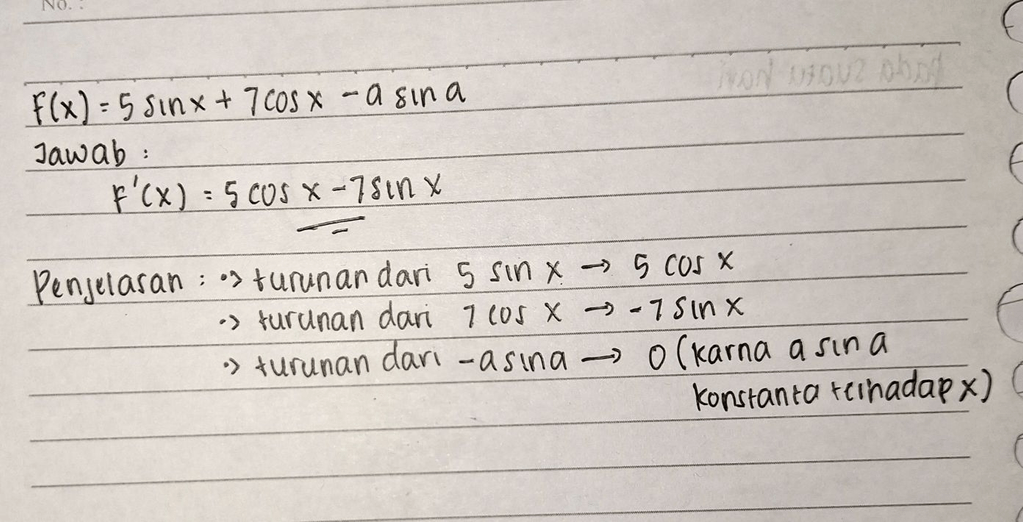 No. :
F(x) = 5 sin x + 7 cos x - a sin a
Jawab :
F'(x) = 5 cos x - 7 sin x
Penjelasan : •> turunan dari 5 sin x → 5 cos x
•> turunan dari 7 cos x → -7 sin x
•> turunan dari -a sin a → 0 (karna a sin a
konstanta terhadap x)